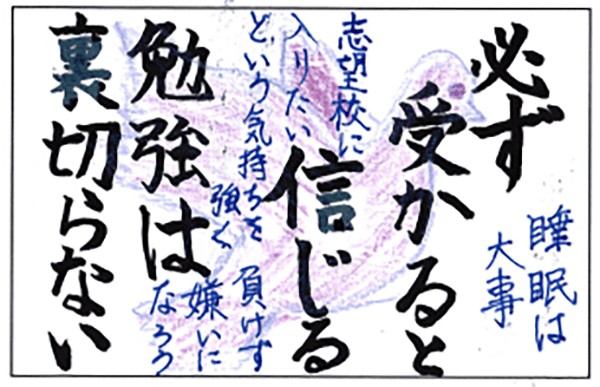 必ず
受かると
信じる
勉強は
裏切らない
睡眠は
大事
志望校に
入りたい
という気持ちを
強く
負けず
嫌いに
なろう